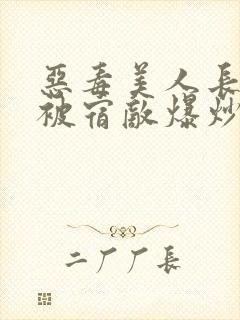 惡毒美人長
被宿敵爆炒
二厂厂長